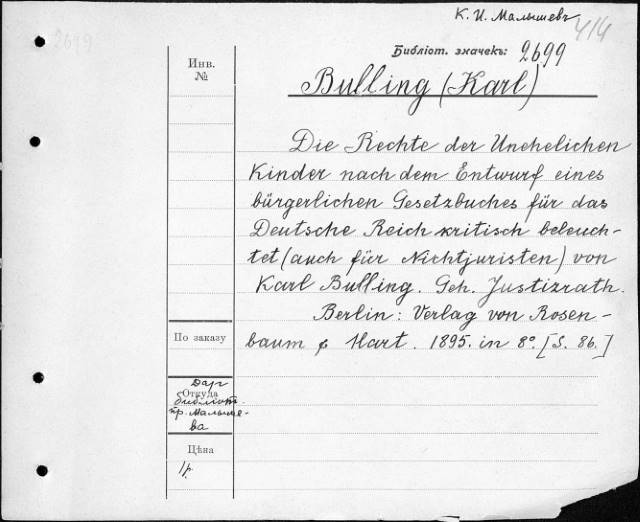 К. И. Малышевъ
414
2699
Библіот. значекъ: 2699
Инв.
№
Bulling (Karl)
Die Rechte der Unehelichen
Kinder nach dem Entwurf eines
bürgerlichen Gesetzbuches für das
Deutsche Reich kritisch beleuch-
tet (auch für Nichtjuristen) von
Karl Bulling. Geh. Justizrath.
Berlin: Verlag von Rosen-
baum & Hart. 1895. in 8º. [S. 86.]
По заказу
Откуда
Дар
библіот.
пр. Малыше-
ва
Цѣна
1 р.